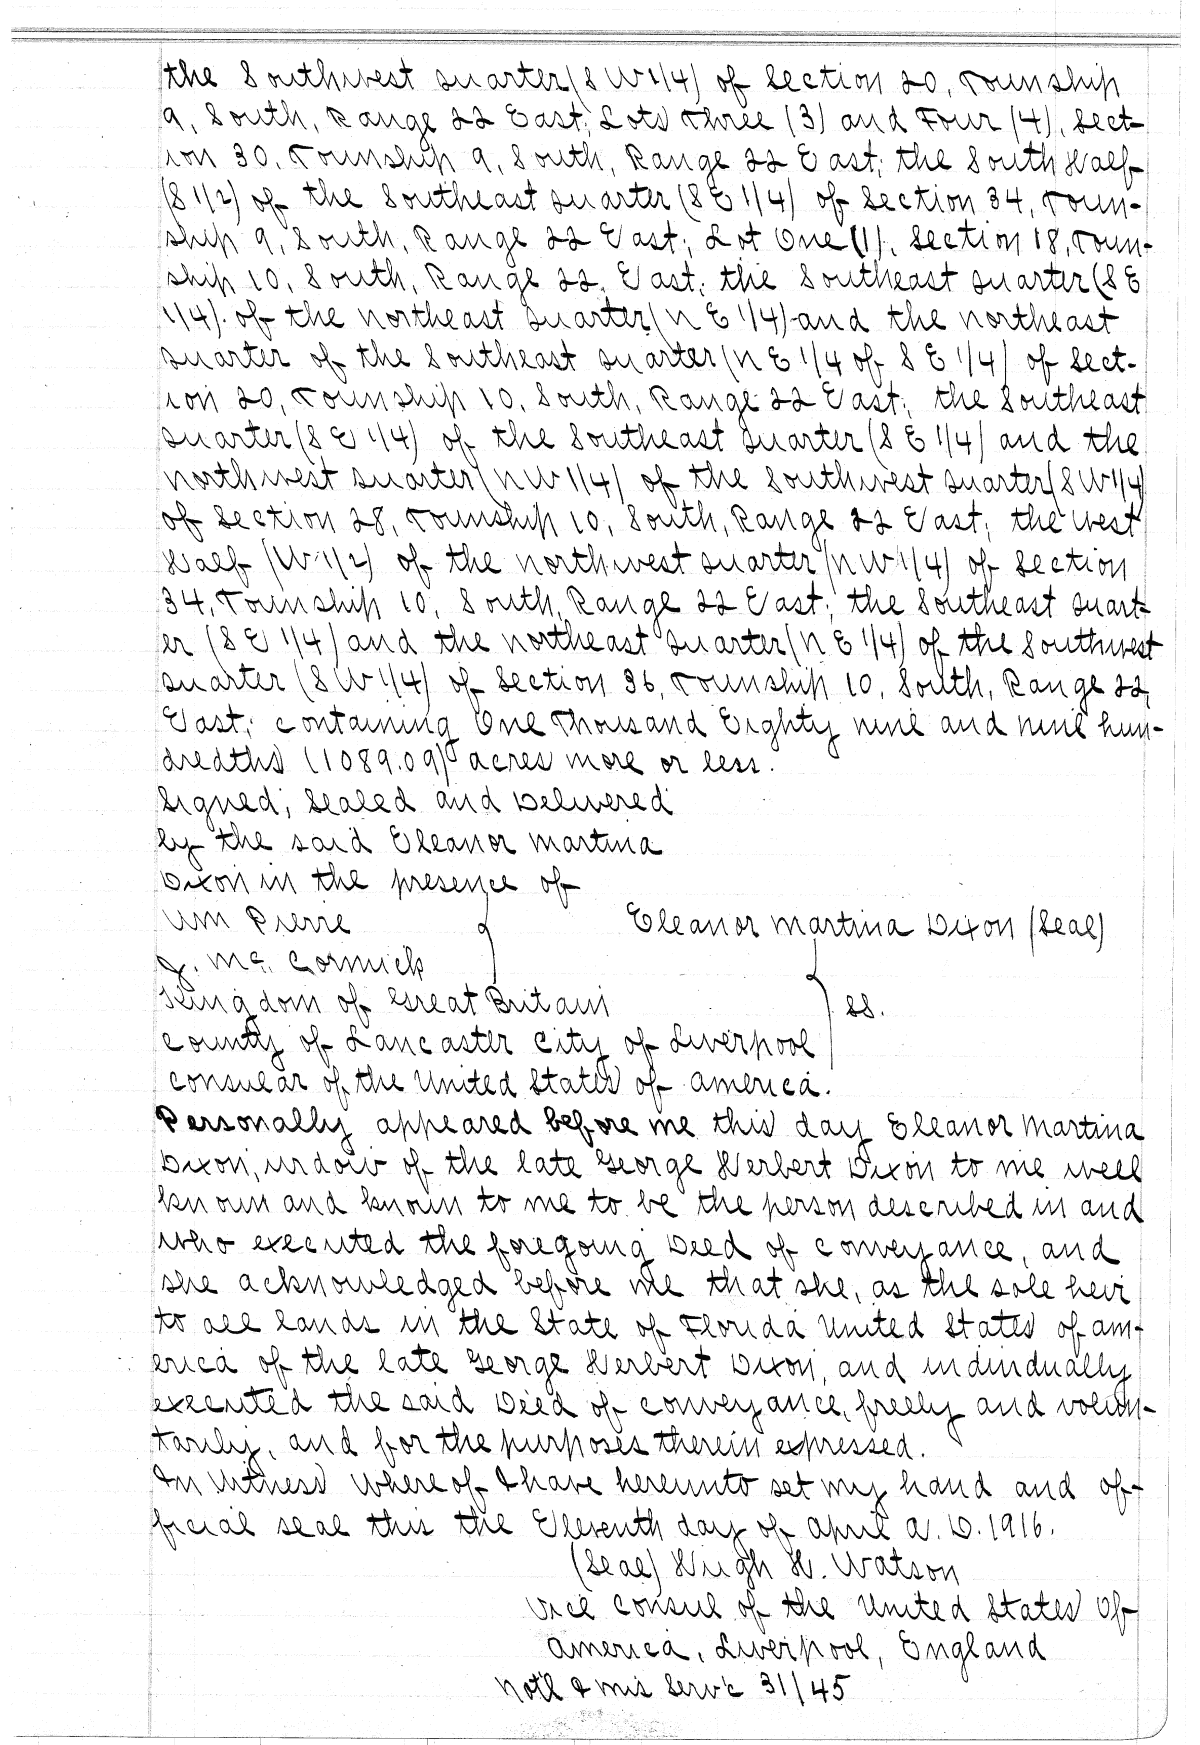 the Southwest quarter (S W 1/4) of Section 20, Township
9, South, Range 22 East; Lots Three (3) and Four (4), Sect-
ion 30, Township 9, South, Range 22 East; the South Half
(S 1/2) of the Southeast quarter (S E 1/4) of Section 34, Town-
ship 9, South, Range 22 East; Lot One (1), Section 18, Town-
ship 10, South, Range 22, East; the Southeast quarter (S E
1/4) of the northeast quarter (n E 1/4) and the northeast
quarter of the Southeast quarter (n E 1/4 of S E 1/4) of Sect-
ion 20, Township 10, South, Range 22 East; the Southeast
quarter (S E 1/4) of the Southeast quarter (S E 1/4) and the
northwest quarter (n W 1/4) of the Southwest quarter (S W 1/4
of Section 28, Township 10, South, Range 22 East; the West
Half (W 1/2) of the northwest quarter (n W 1/4) of Section
34, Township 10, South, Range 22 East; the Southeast quart-
er (S E 1/4) and the northeast quarter (n E 1/4) of the Southwest
quarter (S W 1/4) of Section 36, Township 10, South, Range 22,
East; containing One Thousand Eighty nine and nine hun-
dredths (1089.09) acres more or less.
Signed, Sealed and Delivered
by the said Eleanor Martina
Dixon in the presence of
Wm Pierre Eleanor Martina Dixon (Seal)
J. Mc. Cormick
Kingdom of Great Britain
County of Lancaster City of Liverpool ss.
Consular of the United States of America.
Personally appeared before me this day Eleanor Martina
Dixon, widow of the late George Herbert Dixon to me well
known and known to me to be the person described in and
who executed the foregoing Deed of conveyance, and
she acknowledged before me that she, as the sole heir
to all lands in the State of Florida United States of Am-
erica of the late George Herbert Dixon, and individually
executed the said Deed of conveyance, freely and volun-
tarily, and for the purposes therein expressed.
In Witness whereof I have hereunto set my hand and of-
ficial seal this the Eleventh day of April A. D. 1916.
(Seal) Hugh H. Watson
Vice Consul of the United States of
America, Liverpool, England
Not'l & mis Serv'c 31/45